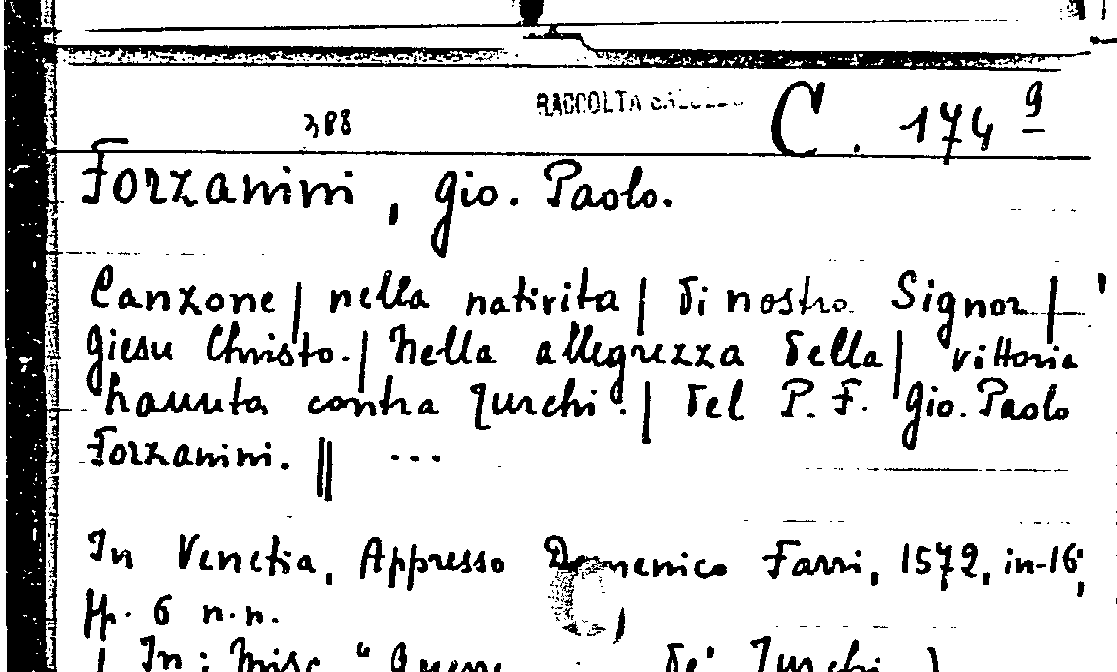 RACCOLTA
388
C. 174 9
Forzanini, Gio. Paolo.
Canzone | nella natività | di nostro Signor |
Giesu Christo. | Nella allegrezza della | vittoria
hauuta contra Turchi. | Del P. F. Gio. Paolo
Forzanini. || ...
In Venetia, Appresso Domenico Farri, 1572, in-16,
pp. 6 n.n.
( In: Misc. "Guerre de' Turchi )